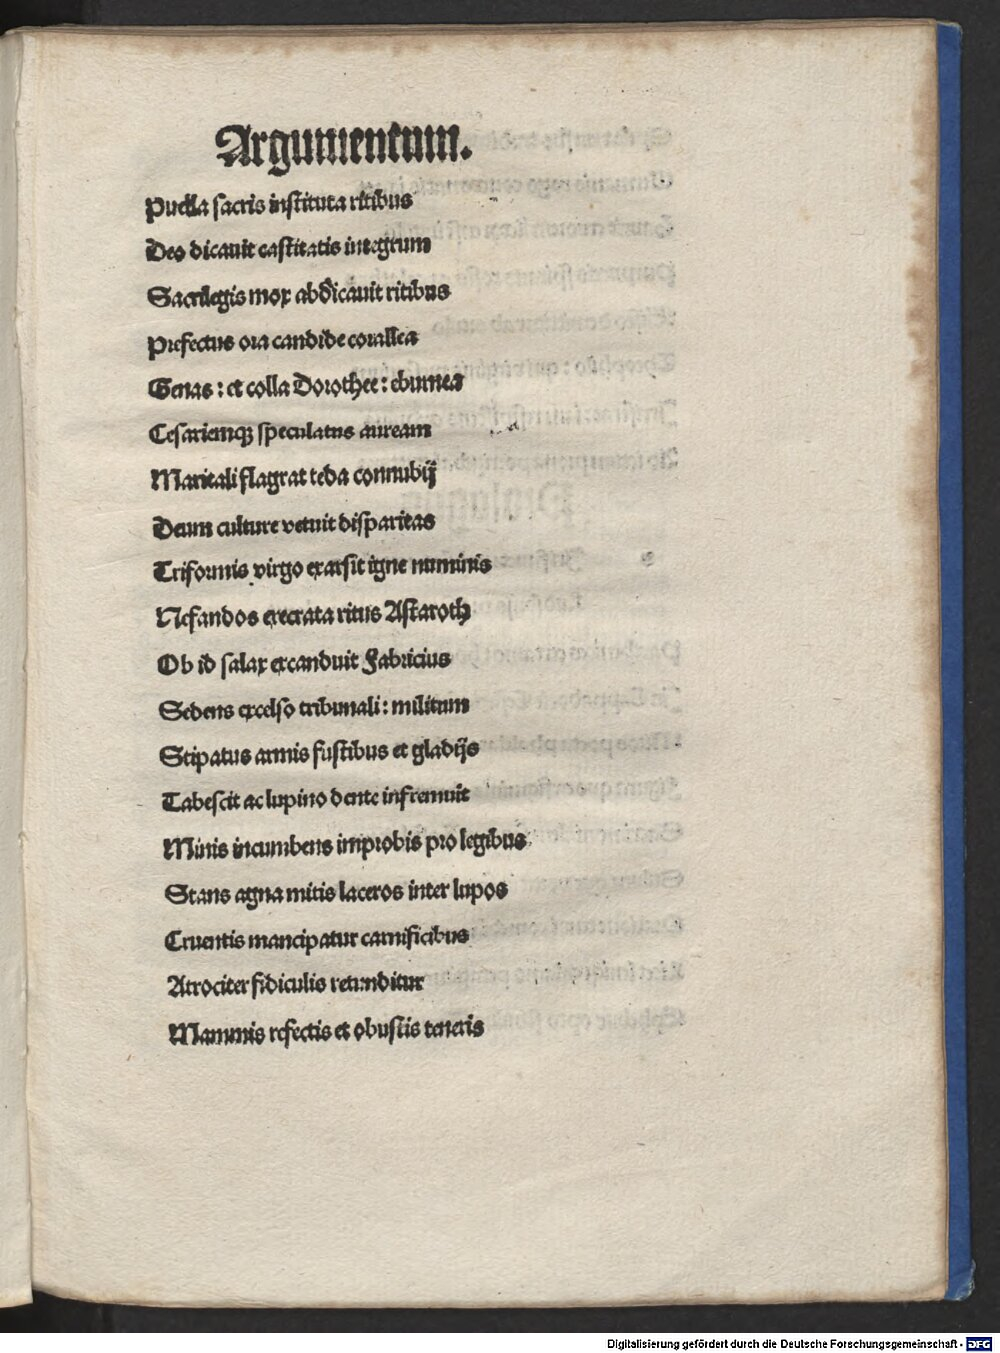 Argumentum.
Puella sacris instituta ritibus
Deo dicauit castitatis integrum
Sacrilegis mox abdicauit ritibus
Prefectus ora candide corallea
Genas : et colla Dorothee : eburnea
Cesariemqȝ speculatus auream
Maritali flagrat teda connubij
Deum culture vetuit disparitas
Triformis virgo exarsit igne numinis
Nefandos execrata ritus Astaroth
Ob id salax excanduit Fabricius
Sedens excelso tribunali : militum
Stipatus armis fustibus et gladijs
Tabescit ac lupino dente infremuit
Minis incumbens improbis pro legibus
Stans agna mitis laceros inter lupos
Cruentis mancipatur carnificibus
Atrociter fidiculis retunditur
Mammis refectis et obustis teneris
Digitalisierung gefördert durch die Deutsche Forschungsgemeinschaft - DFG